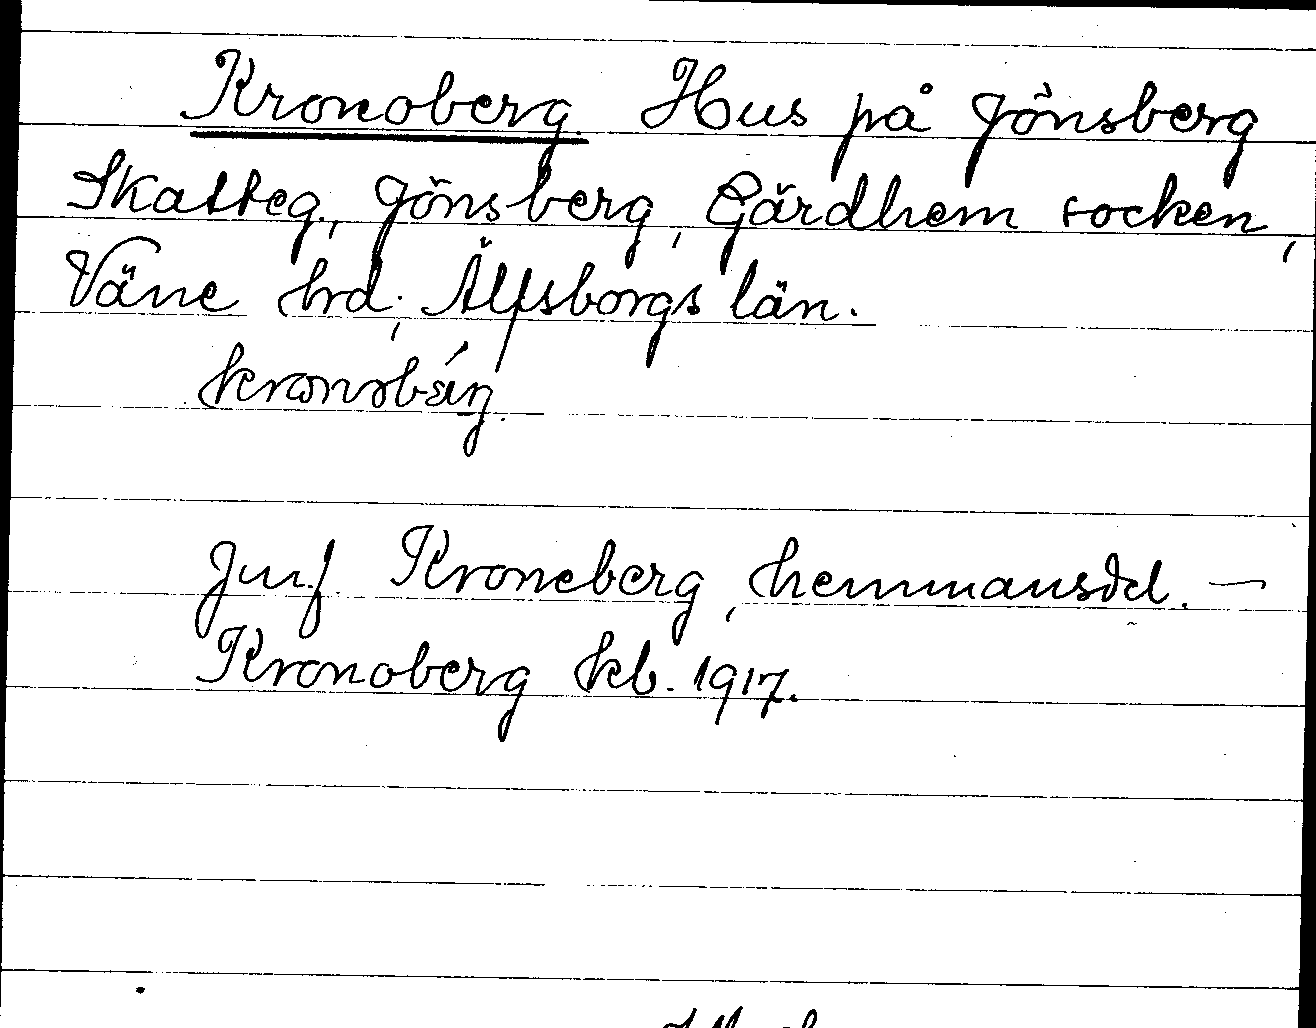 Kronoberg Hus på Jönsberg
Skatteg., Jönsberg, Gärdhem socken,
Väne hrd, Älfsborgs län.
Jmf. Kroneberg, hemmansdel. —
Kronoberg kb. 1917.